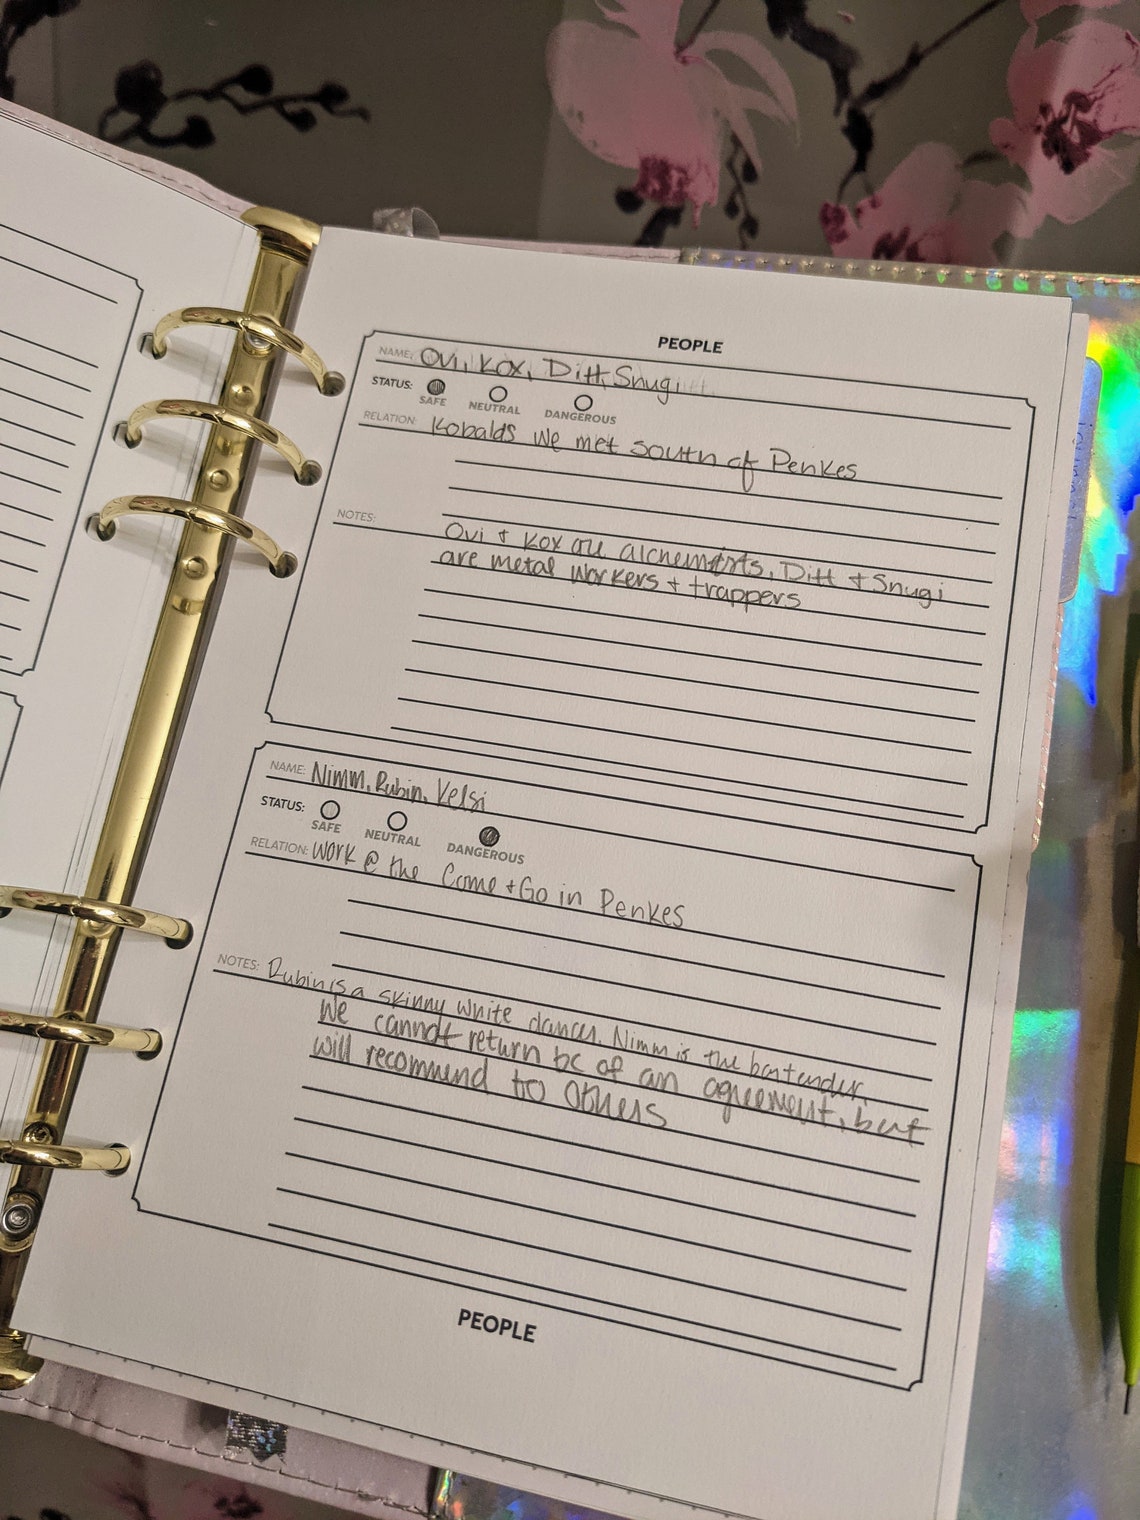 PEOPLE
NAME: Ovi, Kox, Ditt, Snugi
STATUS: SAFE NEUTRAL DANGEROUS
RELATION: Kobalds we met south of Penkes
NOTES:
Ovi + Kox are alchemists, Ditt + Snugi
are metal workers + trappers
NAME: Nimm, Rubin, Kelsi
STATUS: SAFE NEUTRAL DANGEROUS
RELATION: work @ the Come + Go in Penkes
NOTES: Rubin is a skinny white dancer. Nimm is the bartender.
We cannot return bc of an agreement, but
will recommend to others
PEOPLE